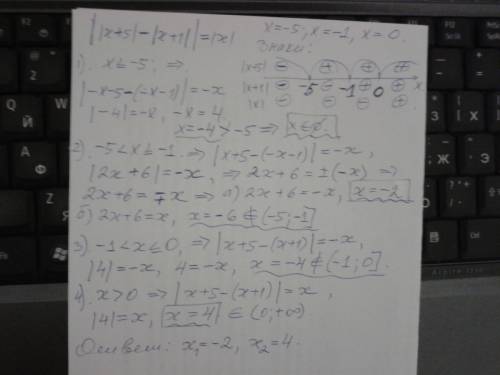 ||x+5|-|x+1||=|x| x=-5; x=-1, x=0.
Знаки:
1). x≤-5; ⇒ |x+5| ⊖ ⊕ ⊕ ⊕
|-x-5-(-x-1)|=-x |x+1| ⊖ -5 ⊖ -1 ⊕ 0 ⊕ x
|-4|=-x, -x=4, |x| ⊖ ⊖ ⊖ ⊕
x=-4>-5 ⇒ x∈∅
2). -5<x≤-1. ⇒ |x+5-(-x-1)|=-x,
|2x+6|=-x, ⇒ 2x+6=±(-x) ⇒
2x+6=∓x ⇒ а) 2x+6=-x, x=-2
б) 2x+6=x, x=-6∉(-5;-1]
3) -1<x≤0, ⇒ |x+5-(x+1)|=-x,
|4|=-x, 4=-x, x=-4∉(-1;0].
4). x>0 ⇒ |x+5-(x+1)|=x,
|4|=x, x=4 ∈ (0;+∞)
Ответ: x₁=-2, x₂=4.